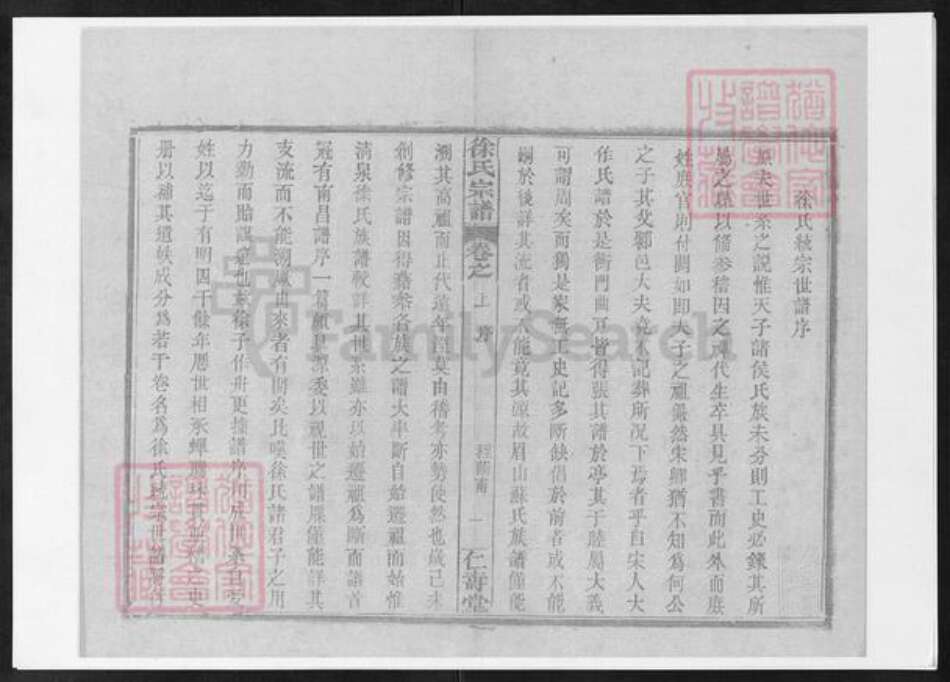 徐氏統宗世譜序
夫世系之說惟天子諸侯氏族未分則工史必錄其所
屬之以俻參稽因之歷代生卒具見乎書而此外而庶
姓庶官則付闕如即夫子之祖儼然宋卿猶不知為何公
之子其父鄹邑大夫竟不記葬所况下焉者乎自宋人大
作氏譜於是衡門曲戶皆得張其譜於亭其于睦屬大義
可謂周矣而獨是家無工史記多斷缺倡於前者或不能
嗣於後詳其流者或不能竟其源故眉山蘇氏族譜僅能
徐氏宗譜
卷之上 序
程 一
仁壽堂
溯其高祖而止代遠年湮莫由稽考亦勢使然也歲己未
創修宗譜因得叅各族之譜大率斷自始遷祖而始惟
清泉徐氏族譜較詳其世系雖亦以始遷祖為斷而譜首
冠有南昌譜序一篇以視世之譜牒僅能詳其
支流而不能溯源由來者有間矣比嘆徐氏諸君子之用
力勤而貽謀遠也徐子作舟更據譜序
姓以迄于有明因千餘年歷世相承蟬聯史
册以補其遺軼成分為若干卷名為徐氏統宗世譜
FamilySearch